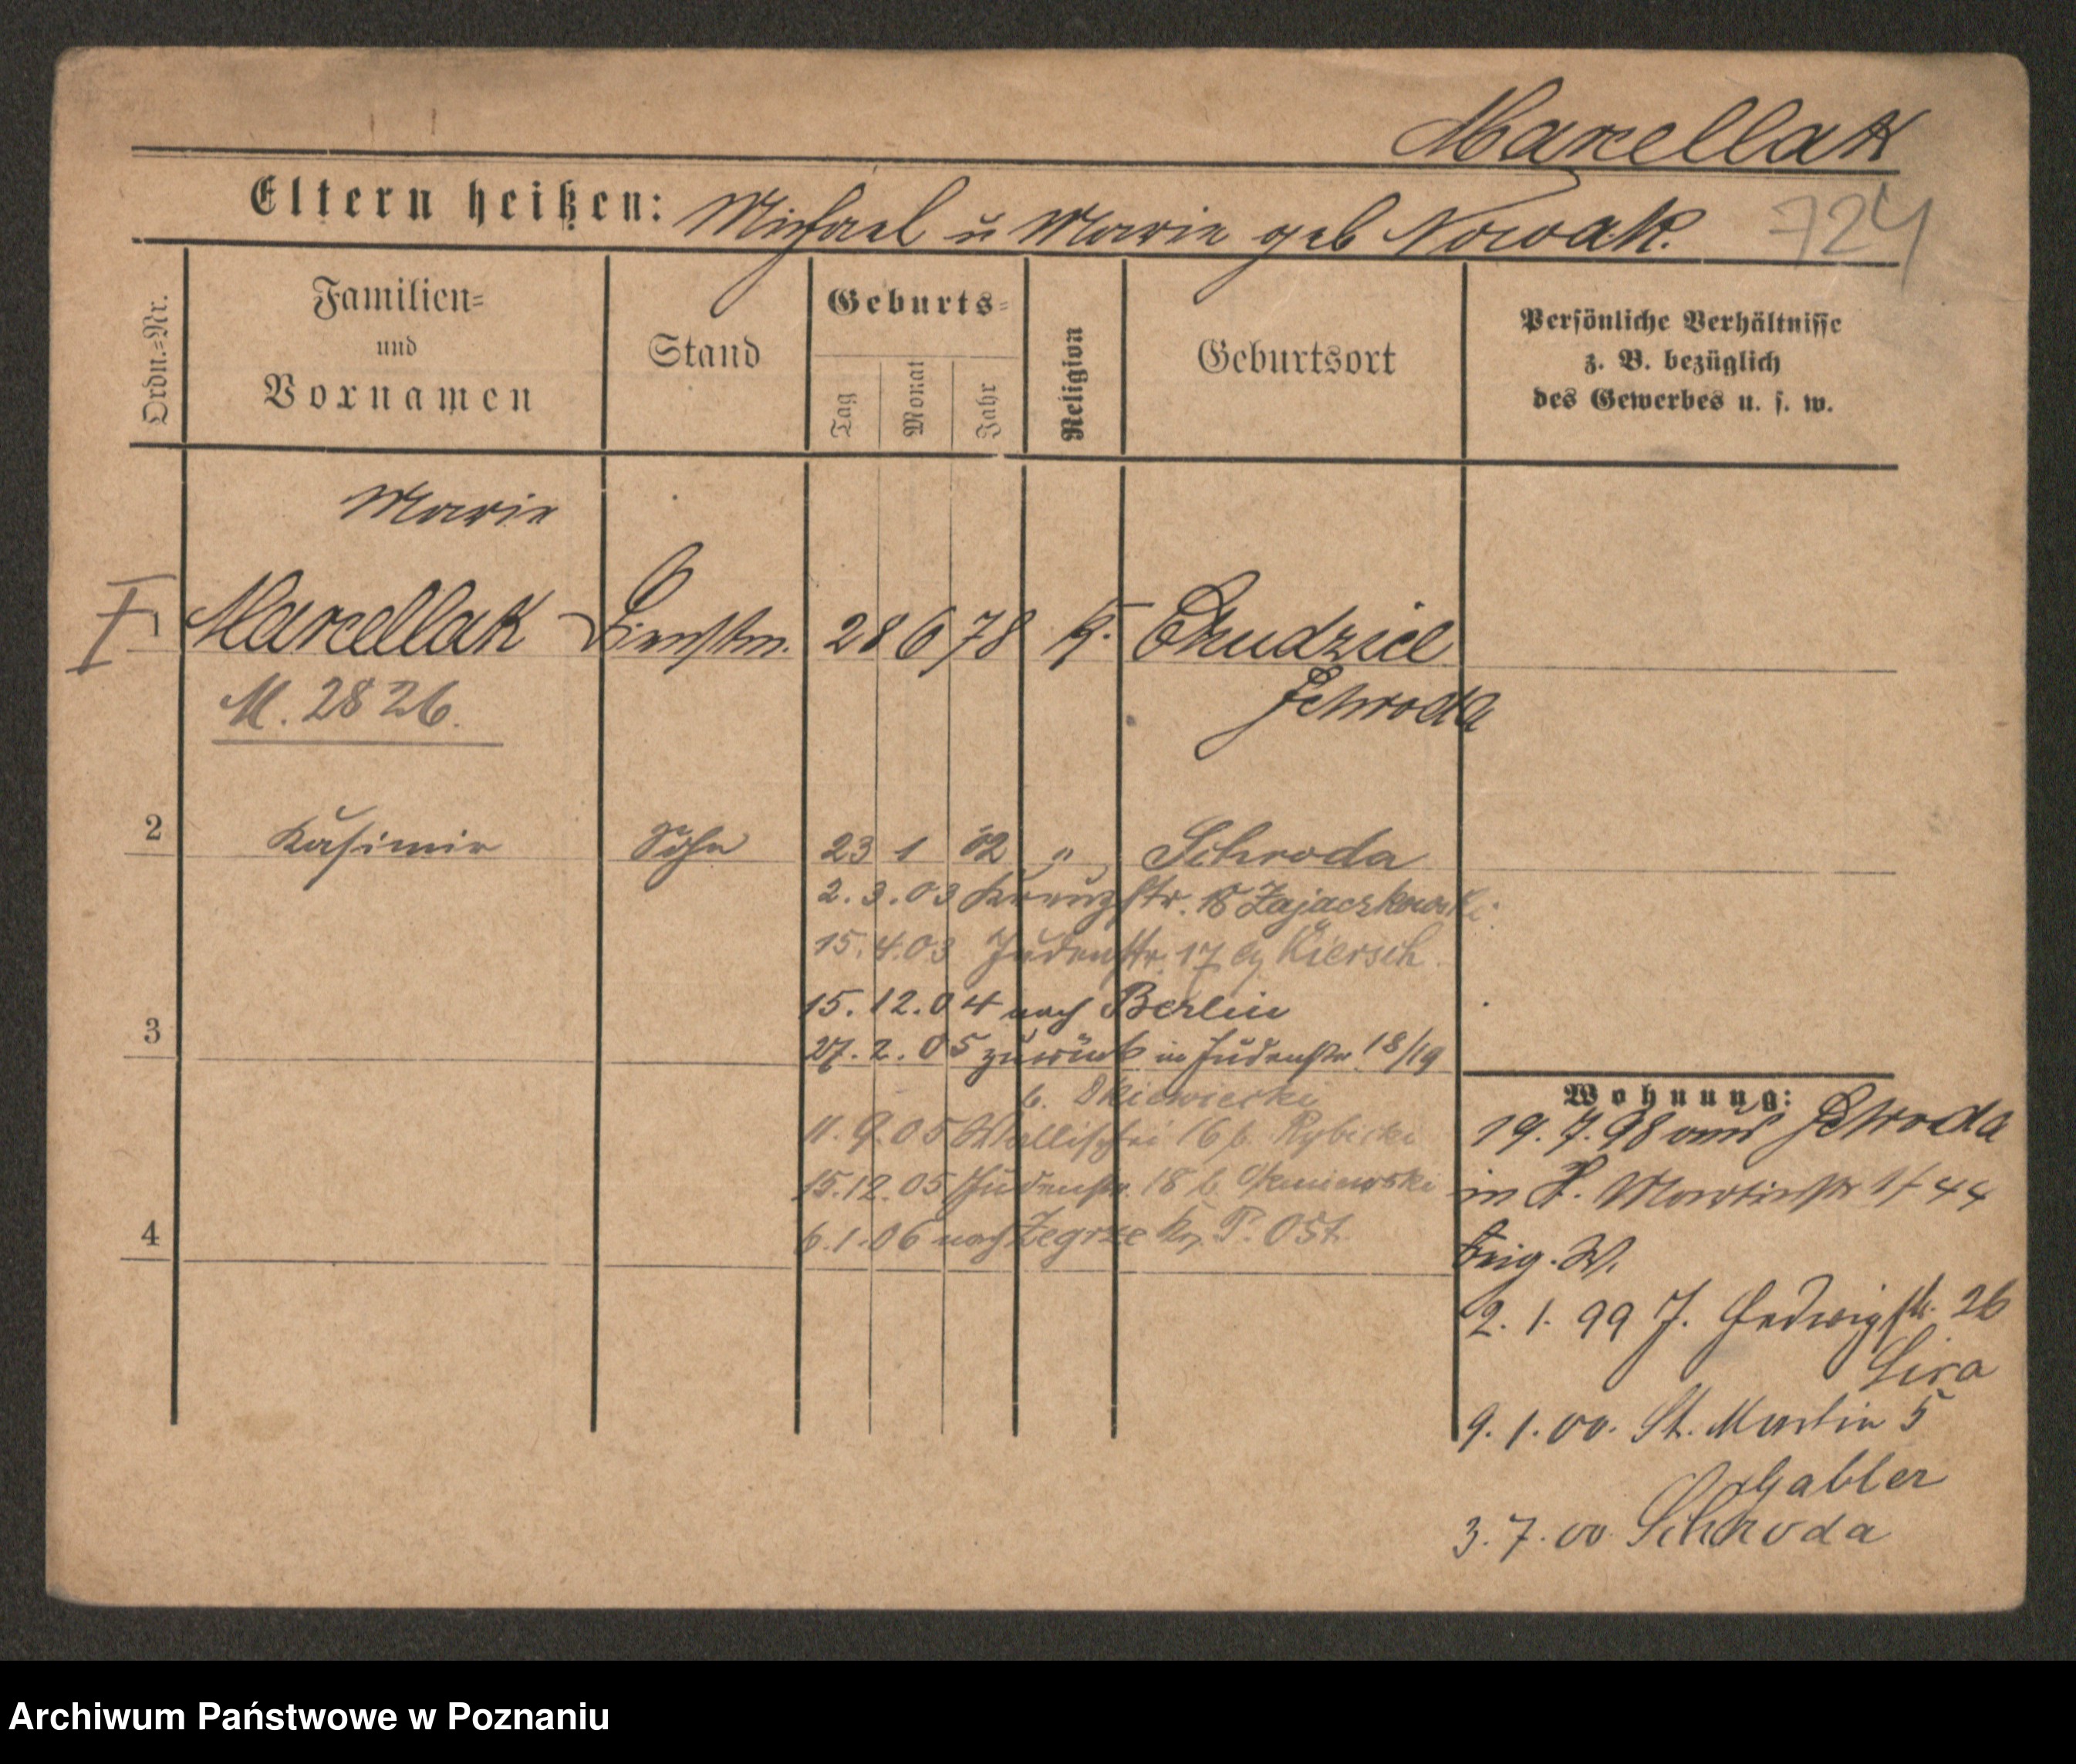 Marcellak
Eltern heißen: Michael u Marie geb Nowak.
724
Ordn.=Nr.
Familien=
und
Vornamen
Stand
Geburts=
Tag
Monat
Jahr
Religion
Geburtsort
Persönliche Verhältnisse
z. B. bezüglich
des Gewerbes u. s. w.
Marie
I 1 Marcellak Dienstm. 28 6 78 K. Chudzice
Schroda
M. 2826.
2 Kasimir Sohn 23 1 02 " Schroda
2.3.03 Kreuzstr. 18 Zajaczkowski
15.4.03 Judenstr. 17 Kiersch.
15.12.04 nach Berlin
3
27.2.05 zurück in Judenstr 18/19
b.
11.9.05 Wallischei 16 b. Rybicki
15.12.05 Judenstr. 18 b.
4
6.1.06 nach Zegrze Kr. P. Ost.
Wohnung:
19.7.98 aus Schroda
in St. Martinstr 44
2.1.99 J. Hedwigstr. 26
Lira
9.1.00. St. Martin 5
Gabler
3.7.00 Schroda
Archiwum Państwowe w Poznaniu